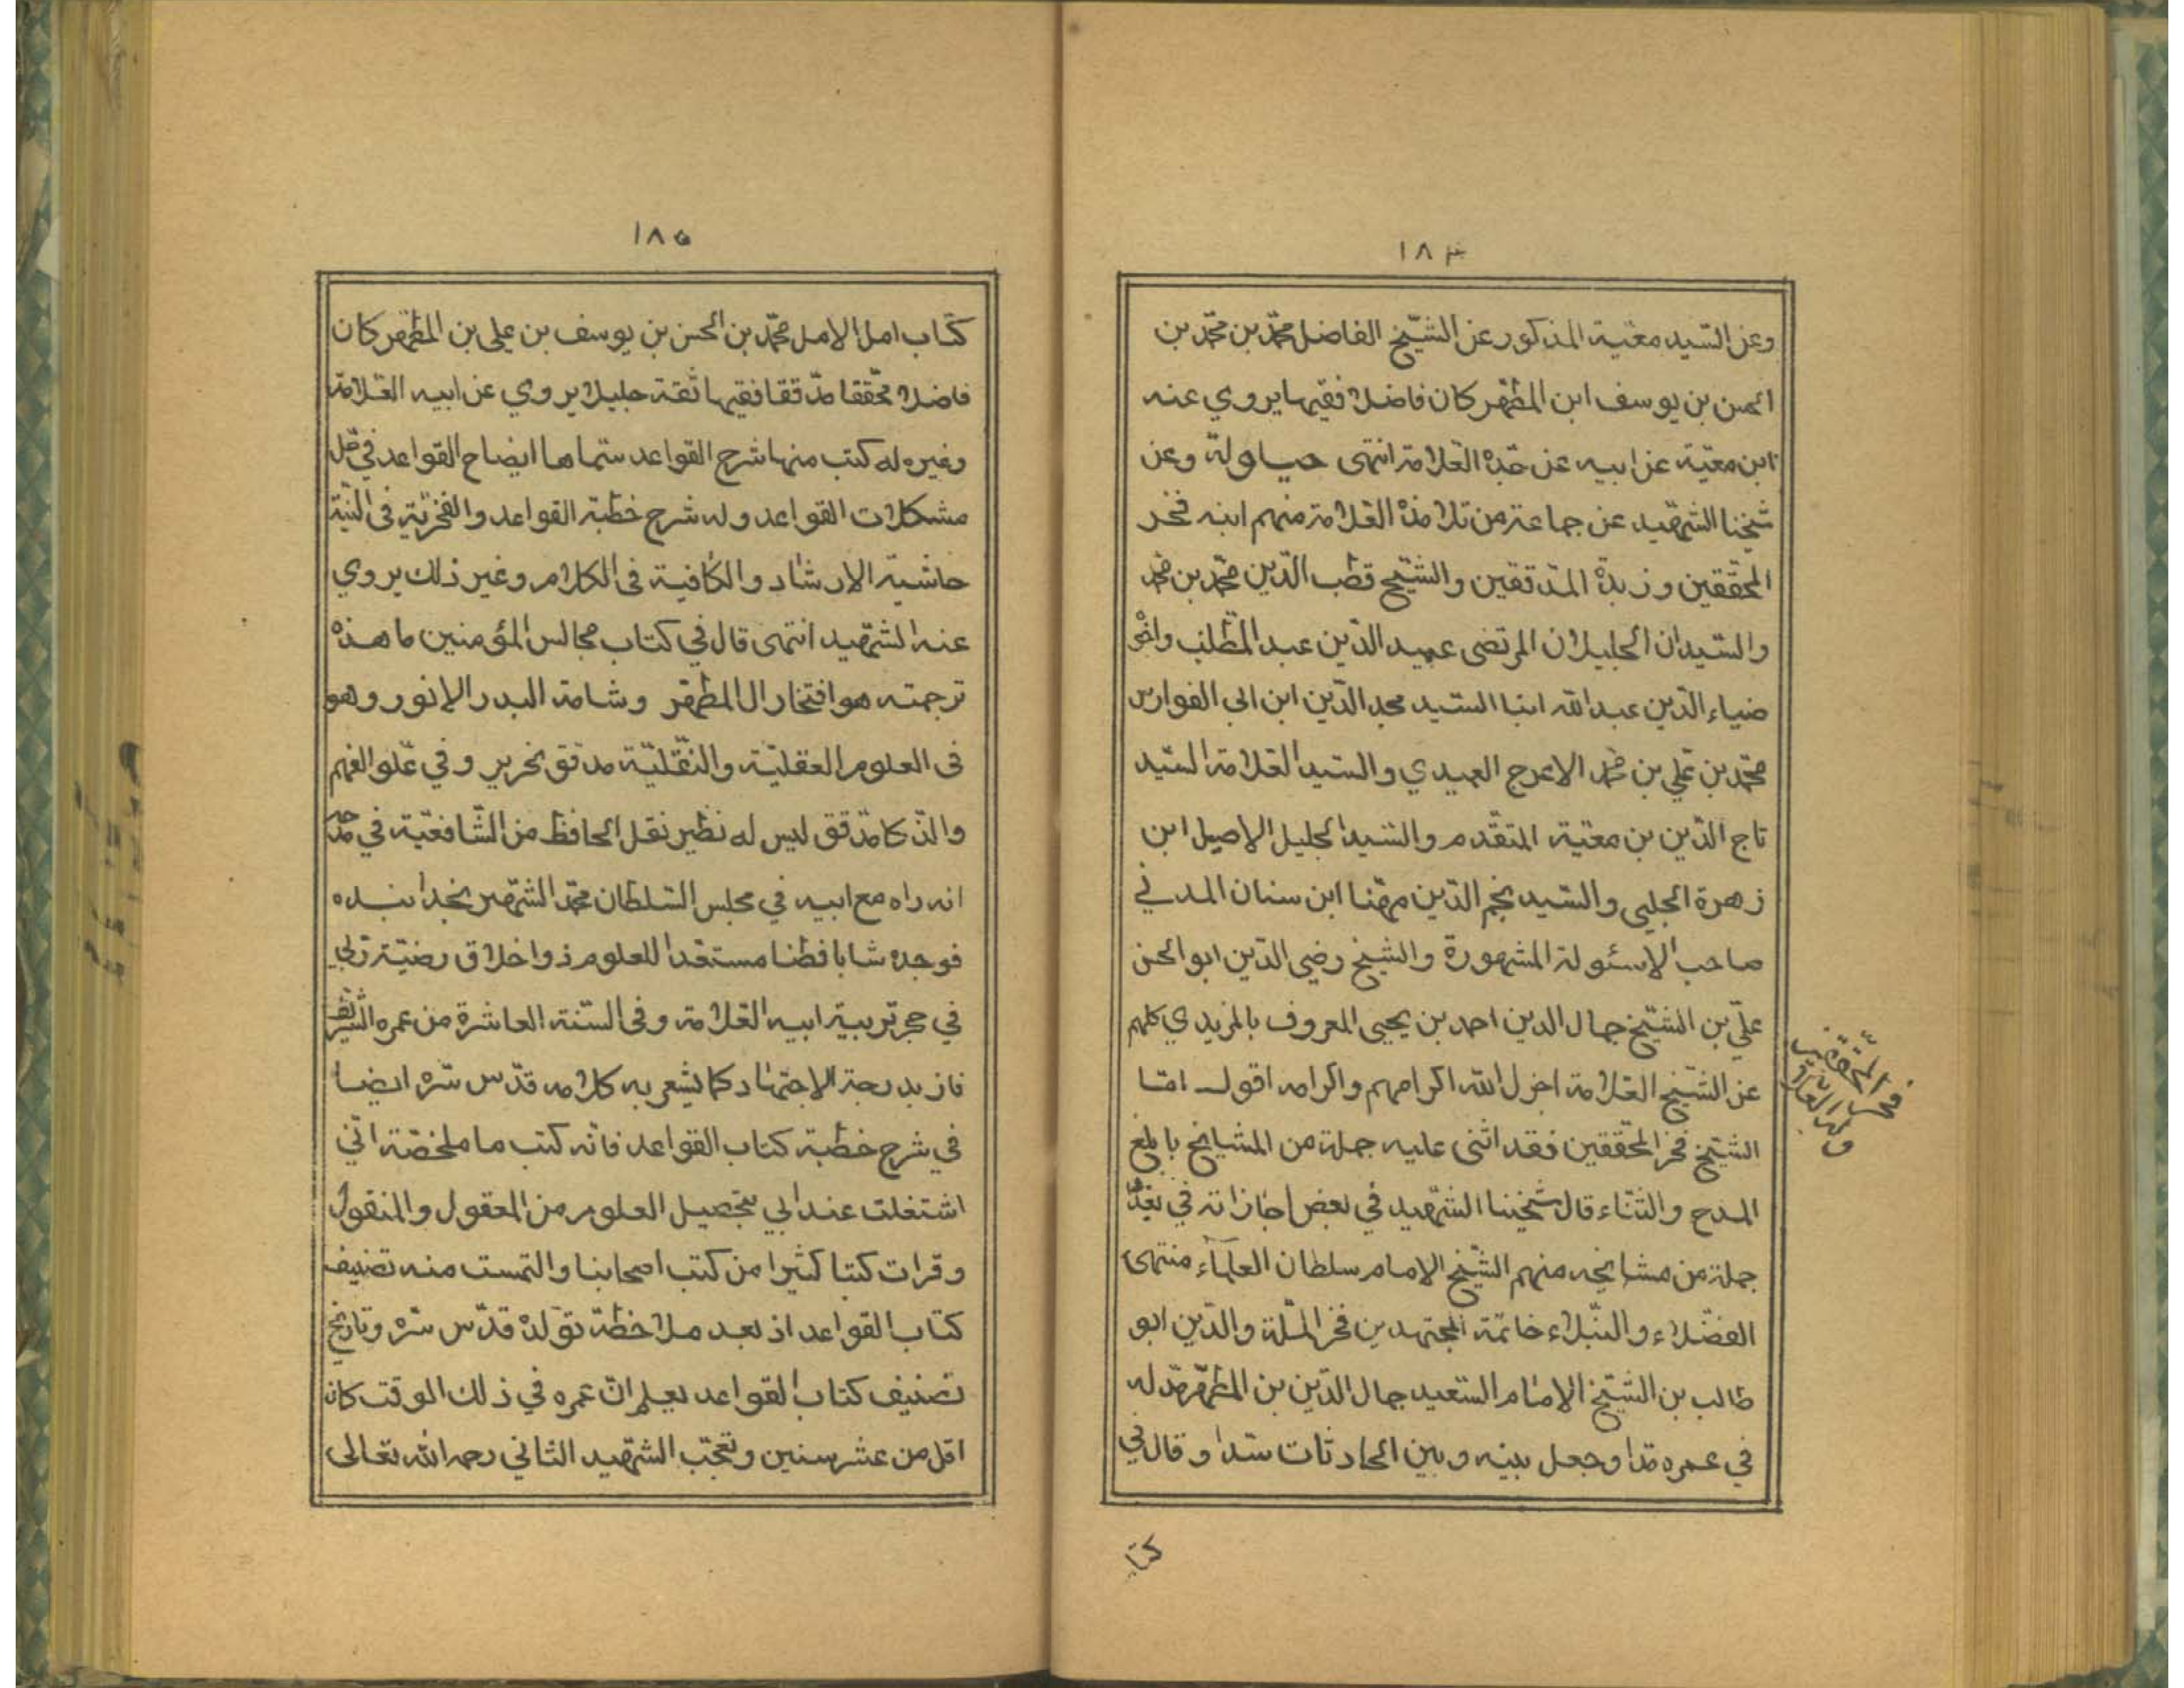 ١٨٤
وعن السّيد معيّة المذكور عن الشّيخ الفاضل محمّد بن محمّد بن
الحسن بن يوسف ابن المطّهر كان فاضلا فقيها يروي عنه
ابن معيّة عن ابيه عن جّده العّلامة انتهى حياولة وعن
شيخنا الشهّيد عن جماعة من تلامذة العّلامة منهم ابنه فخر
المحّققين وزبدة المدّققين والشّيخ قطب الدّين محمّد بن محمّد
والسّيدان الجليلان المرتضى عميد الدّين عبد المطّلب واخو
ضياء الدّين عبد الله ابنا السّيد مجد الدّين ابن ابي الفوارس
محمّد بن عّلي بن محمّد الاعرج العميدي والسّيد العّلامة السّيد
تاج الدّين بن معيّة المتقّدم والسّيد الجليل الاصيل ابن
زهرة الحلبي والسّيد نجم الدّين مهّنا ابن سنان المدني
صاحب الاسئولة المشهورة والشيخ رضي الدّين ابو الحسن
علّي بن الشّيخ جمال الدين احمد بن يحيى المعروف بالمزيدي كلهم
عن الشّيخ العّلامة اجزل الله اكرامهم واكرامه اقول امّا
الشّيخ فخر المحّققين فقد اثنى عليه جملة من المشايخ بابلغ
المدح والثّناء قال شيخنا الشهّيد في بعض اجازاته في تعدّ
جملة من مشايخه منهم الشّيخ الامام سلطان العلمآء منتهى
الفضّلاء والنّبلاء خاتمة المجتهدين فخر المّلة والدّين ابو
طالب بن الشّيخ الامام السّعيد جمال الدّين بن المطّهر مّد له
في عمره مّدا وجعل بينه وبين الحادثات سّدا وقال في
فخر المحّققين
ولد العلامة
كتا
١٨٥
كتاب امل الامل محمّد بن الحسن بن يوسف بن علي بن المطّهر كان
فاضلا محّققا مدّققا فقيها ثقة جليلا يروي عن ابيه العّلامة
وغيره له كتب منها شرح القواعد سّماها ايضاح القواعد في حّل
مشكلات القواعد وله شرح خطبة القواعد والفخرّية في النيّة
حاشية الارشاد والكافية في الكلام وغير ذلك يروي
عنه الشهّيد انتهى قال في كتاب مجالس المؤمنين ما هذه
ترجمته هو افتخار ال المطهّر وشامة البدر الانور وهو
في العلوم العقليّة والنّقليّة مدقق نحرير وفي عّلو الفهم
والذّكا مدّقق ليس له نظير نقل الحافظ من الشّافعيّة في مدحه
انه راه مع ابيه في مجلس السّلطان محمّد الشّهير بخدا بنده
فوجده شابا فطنا مستعّدا للعلوم ذو اخلاق رضيّة ربي
في حجر تربية ابيه العّلامة وفي السّنة العاشرة من عمره الشّريف
فاز بدرجة الاجتهاد كما يشعر به كلامه قدّس سّره ايضا
في شرح خطبة كتاب القواعد فانّه كتب ما ملخّصة انّي
اشتغلت عند ابي بتحصيل العلوم من المعقول والمنقول
وقرات كتبا كثيرا من كتب اصحابنا والتمست منه تصنيف
كتاب القواعد اذ بعد ملاحظة توّلده قدّس سّره وتاريخ
تصنيف كتاب القواعد يعلم انّ عمره في ذلك الوقت كان
اقل من عشر سنين وتعجّب الشهّيد الثاني رحمه الله تعالى